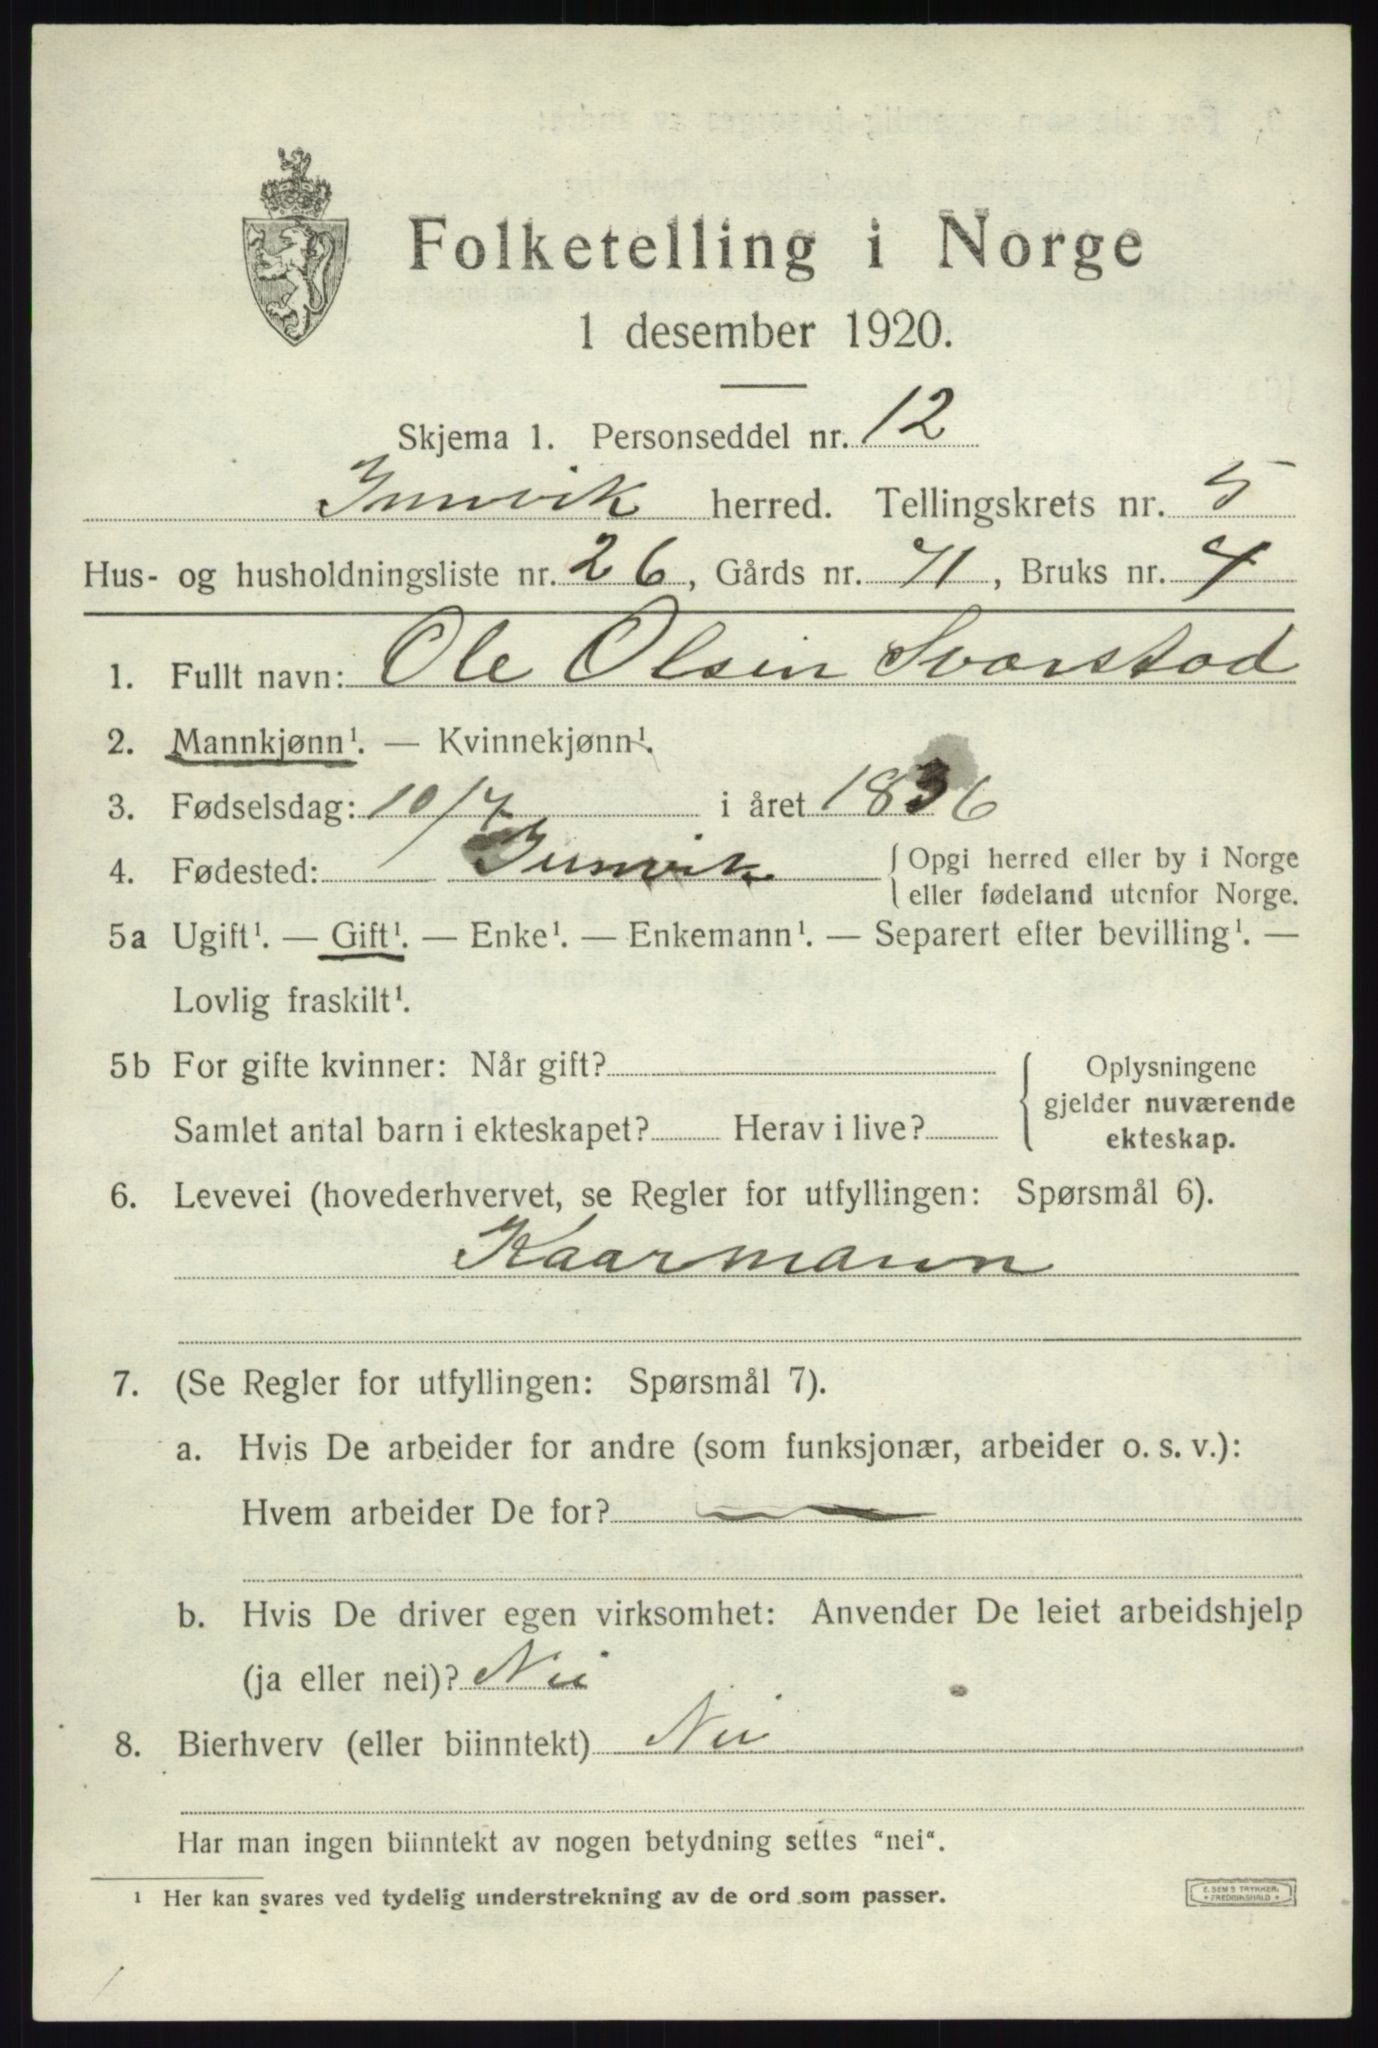 Folketelling i Norge
1 desember 1920.
Skjema 1. Personseddel nr. 12
Innvik herred. Tellingskrets nr. 5
Hus- og husholdningsliste nr. 26, Gårds nr. 71, Bruks nr. 4
1. Fullt navn: Ole Olsen Svarstad
2. Mannkjønn¹. — Kvinnekjønn¹.
3. Fødselsdag: 10/7 i året 1836
4. Fødested: Innvik { Opgi herred eller by i Norge
eller fødeland utenfor Norge.
5a Ugift¹. — Gift¹. — Enke¹. — Enkemann¹. — Separert efter bevilling¹. —
Lovlig fraskilt¹.
5b For gifte kvinner: Når gift? { Oplysningene
gjelder nuværende
Samlet antal barn i ekteskapet? Herav i live?
ekteskap.
6. Levevei (hovederhvervet, se Regler for utfyllingen: Spørsmål 6).
Kaarmann
7. (Se Regler for utfyllingen: Spørsmål 7).
a. Hvis De arbeider for andre (som funksjonær, arbeider o. s. v.):
Hvem arbeider De for? —
b. Hvis De driver egen virksomhet: Anvender De leiet arbeidshjelp
(ja eller nei)? Nei
8. Bierhverv (eller biinntekt) Nei
Har man ingen biinntekt av nogen betydning settes “nei“.
¹ Her kan svares ved tydelig understrekning av de ord som passer.
E. SEM'S TRYKKERI
FREDRIKSHALD